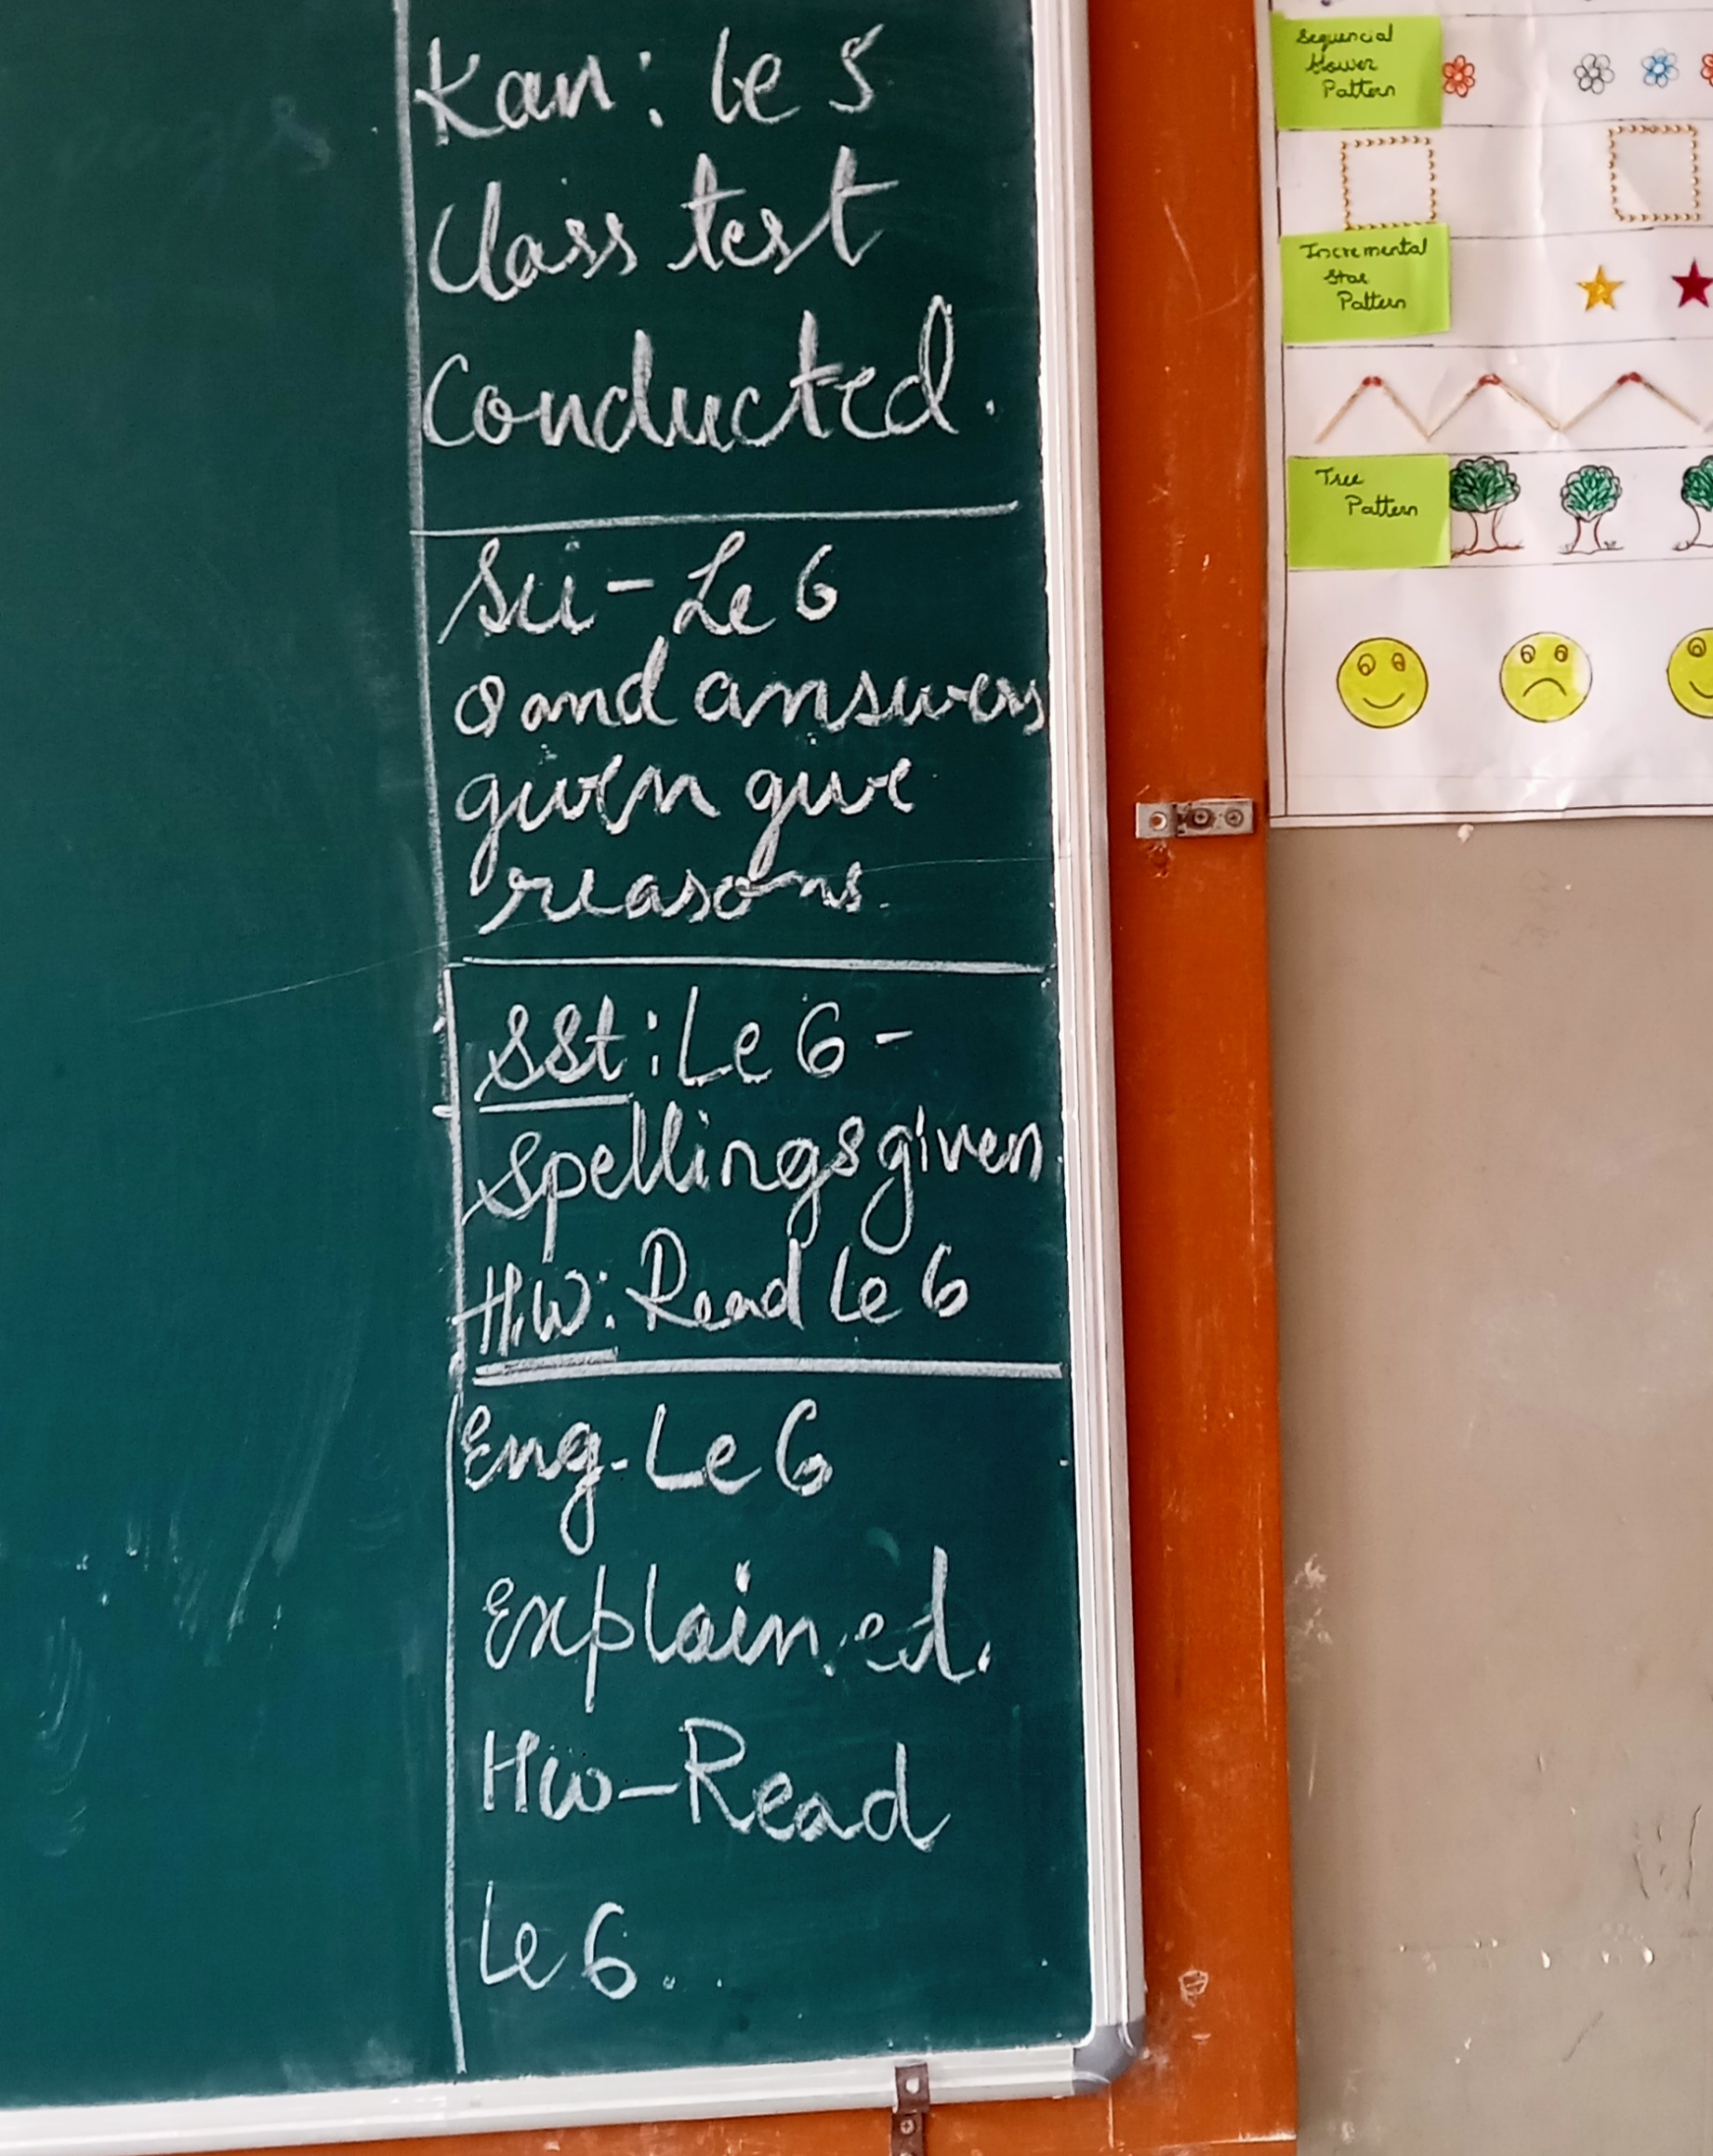 Kan: Le 5
Class test
Conducted.
Sci - Le 6
Q and answers
given give
reasons.
SSt: Le 6 -
Spellings given
H.W: Read Le 6
Eng. Le 6
Explained.
HW - Read
Le 6.
Sequencial
flower
Pattern
Incremental
Star
Pattern
Tree
Pattern